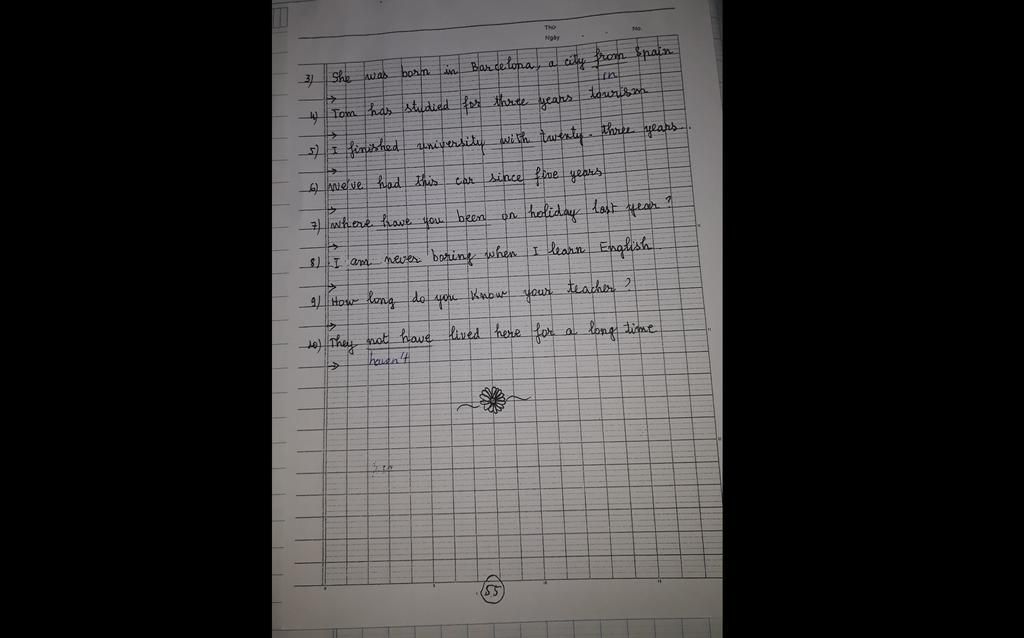 Thứ
No.
Ngày
3) She was born in Barcelona, a city from Spain
in
→
4) Tom has studied for three years tourism
→
5) I finished university with twenty-three years.
→
6) We've had this car since five years
→
7) Where have you been on holiday last year?
→
8) I am never boring when I learn English
→
9) How long do you know your teacher?
→
10) They not have lived here for a long time
→ haven't
55